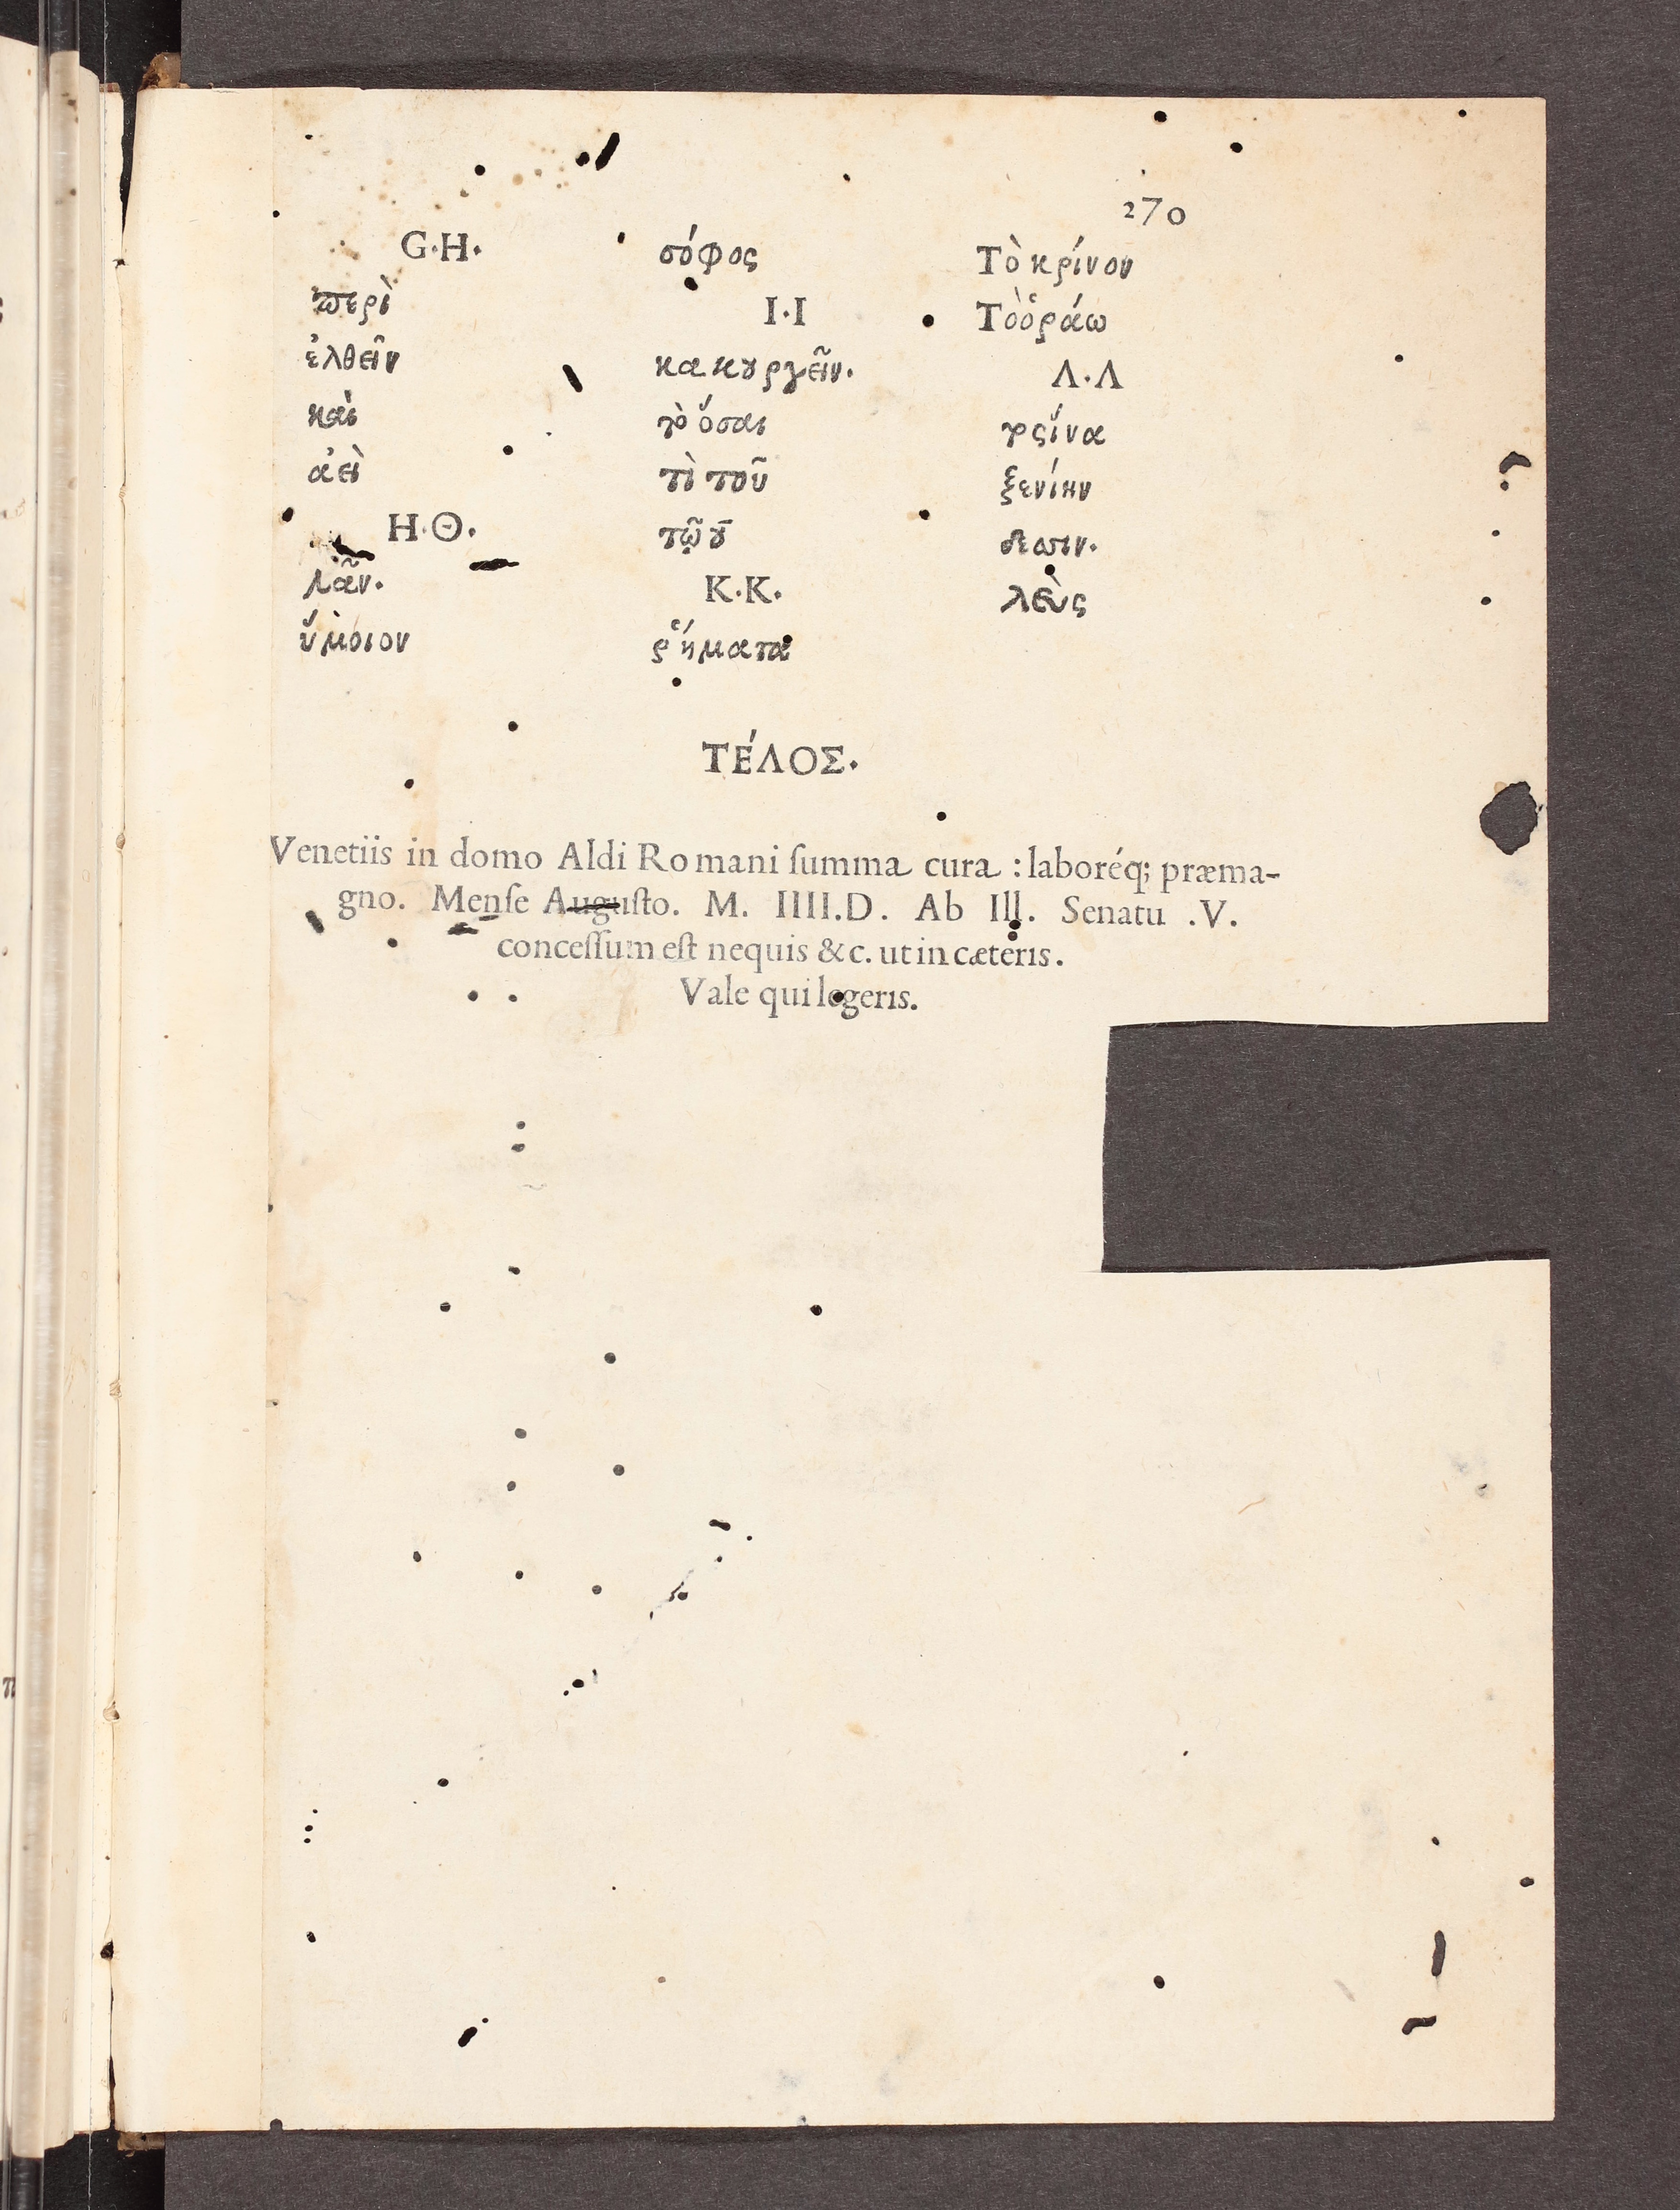 270
G·H·
περὶ
ἐλθεῖν
καὶ
ἀεὶ
H·Θ·
λᾶν.
ὕμοιον
σόφος
I·I
κακουργεῖν.
τὸ ὅσαι
τὶ τοῦ
τῷ
K·K·
ῥήματα
Τὸ κρίνον
Τὸ ὁράω
Λ·Λ
ξενίην
λεὺς
ΤΈΛΟΣ.
Venetiis in domo Aldi Romani ſumma cura : laboréq; præma-
gno. Menſe Auguſto. M. IIII.D. Ab Ill. Senatu .V.
conceſſum eſt nequis &c. ut in cæteris.
Vale qui legeris.